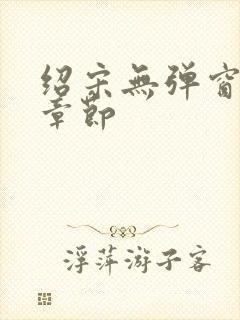 绍宋無弹窗
章節
浮萍游子客